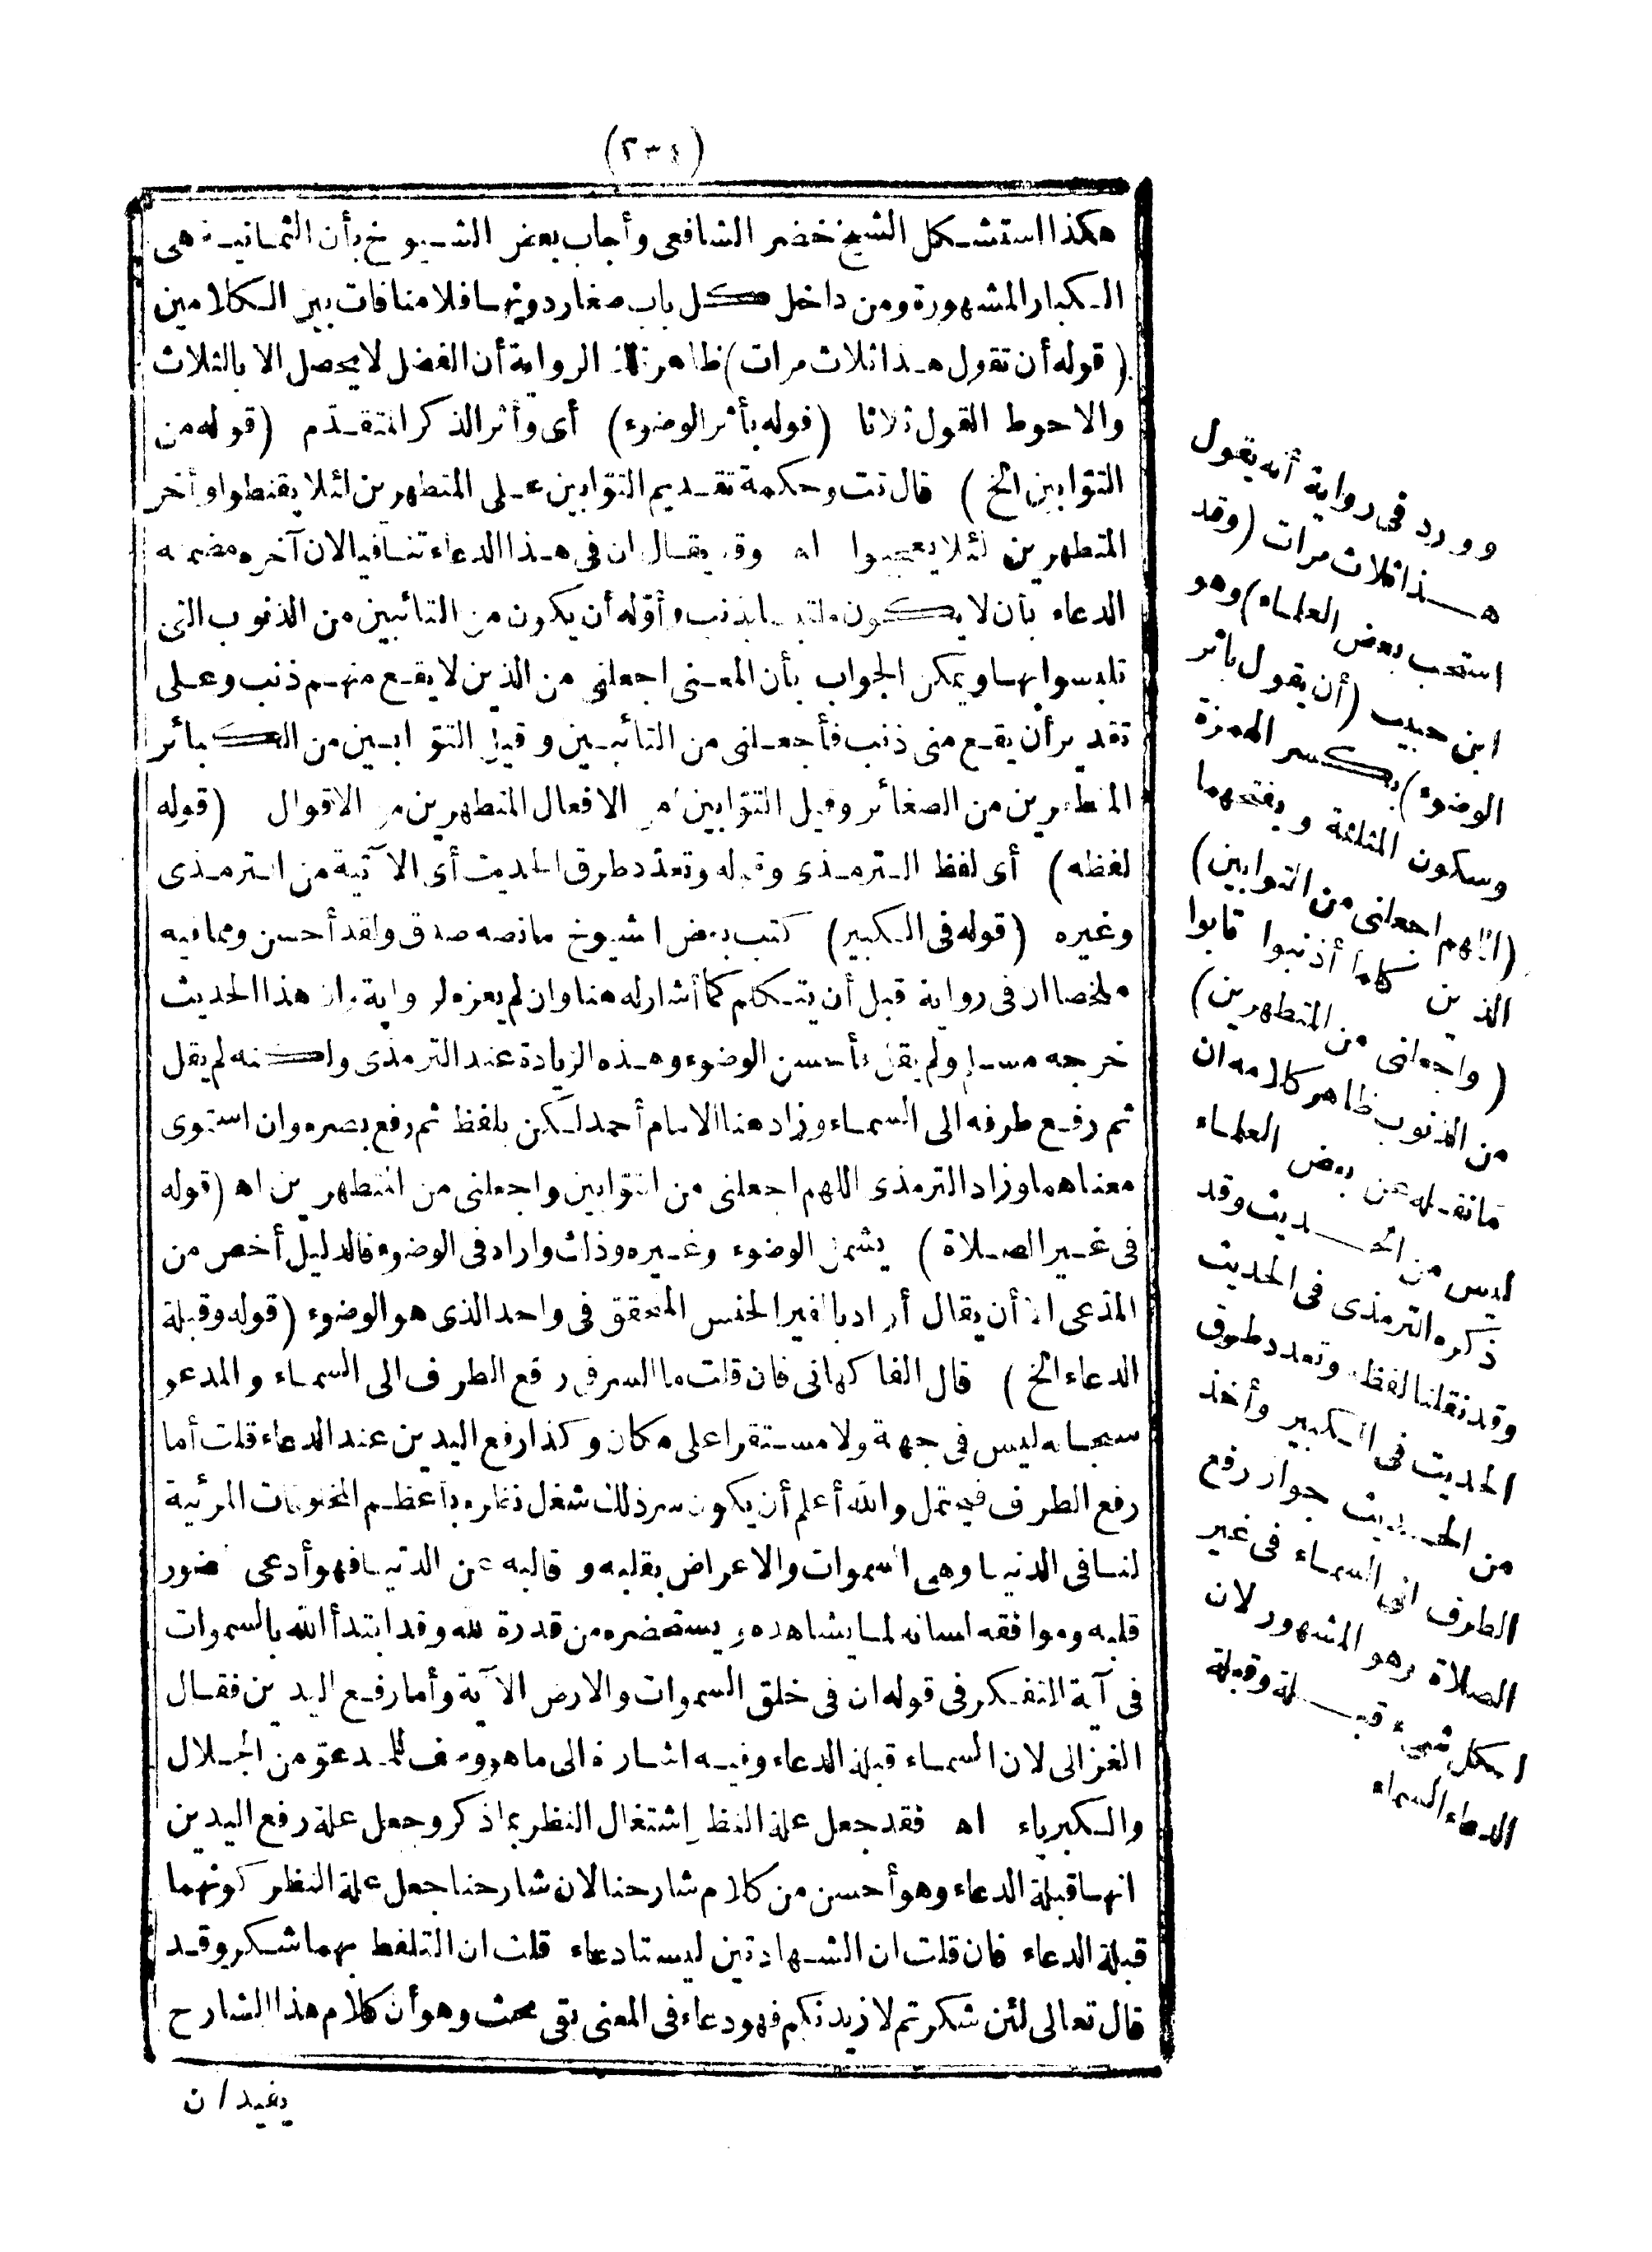 هكذا استشكل الشيخ خضر الشافعى وأجاب بعض الشيوخ بأن الثمانية هى
الكبار المشهورة ومن داخل كل باب صغار دونها فلا منافات بين الكلامين
(قوله أن تقول هذا ثلاث مرات) ظاهر تلك الرواية أن الفضل لا يحصل الا بالثلاث
والاحوط القول ثلاثا (قوله بأثر الوضوء) أى وأثر الذكر المتقدّم (قوله من
التوّابين الخ) قال تت وحكمة تقديم التوّابين على المتطهرين لئلا يقنطوا وأخر
المتطهرين لئلا يعجبوا اه وقد يقال ان فى هذا الدعاء تنافيا لان آخره مضمنه
الدعاء بأن لا يكون ملتبسا بذنب وأوّله أن يكون من التائبين من الذنوب التى
تلبسوا بها ويمكن الجواب بأن المعنى اجعلنى من الذين لا يقع منهم ذنب وعلى
تقدير أن يقع منى ذنب فأجعلنى من التائبين وقيل التوّابين من الكبائر
المتطهرين من الصغائر وقيل التوّابين من الافعال المتطهرين من الاقوال (قوله
لفظه) أى لفظ الترمذى وقوله وتعدّد طرق الحديث أى الآتية من الترمذى
وغيره (قوله فى الكبير) كتب بعض الشيوخ مانصه صدق ولقد أحسن ومما فيه
ملخصا ان فى رواية قبل أن يتكلم كما أشار له هنا وان لم يعزه لرواية وان هذا الحديث
خرجه مسلم ولم يقل فأحسن الوضوء وهذه الزيادة عند الترمذى ولكنه لم يقل
ثم رفع طرفه الى السماء وزاد هنا الامام أحمد لكن بلفظ ثم رفع بصره وان استوى
معناهما وزاد الترمذى اللهم اجعلنى من التوّابين واجعلنى من المتطهرين اه (قوله
فى غير الصلاة) يشمل الوضوء وغيره وذاك وارد فى الوضوء فالدليل أخص من
المدّعى الا أن يقال أراد بالغير الجنس المتحقق فى واحد الذى هو الوضوء (قوله وقبلة
الدعاء الخ) قال الفاكهانى فان قلت ما السر فى رفع الطرف الى السماء والمدعو
سبحانه ليس فى جهة ولا مستقرا على مكان وكذا رفع اليدين عند الدعاء قلت أما
رفع الطرف فيحتمل والله أعلم أن يكون سر ذلك شغل نظره بأعظم المخلوقات المرئية
لنا فى الدنيا وهى السموات والاعراض بقلبه وقالبه عن الدنيا فهو أدعى لحضور
قلبه وموافقه لسانه لما يشاهده ويستحضره من قدرة الله وقد ابتدأ الله بالسموات
فى آية التفكر فى قوله ان فى خلق السموات والارض الآية وأما رفع اليدين فقال
الغزالى لان السماء قبلة الدعاء وفيه اشارة الى ما هو وصف للمدعوّ من الجلال
والكبرياء اه فقد جعل علة النظر اشتغال النظر بما ذكر وجعل علة رفع اليدين
انها قبلة الدعاء وهو أحسن من كلام شارحنا لان شارحنا جعل علة النظر كونهما
قبلة الدعاء فان قلت ان الشهادتين ليستا دعاء قلت ان التلفظ بهما شكر وقد
قال تعالى لئن شكرتم لازيدنكم فهو دعاء فى المعنى بقى بحث وهو أن كلام هذا الشارح
يفيد ان
وورد فى رواية أنه يقول
هذا ثلاث مرات (وقد
استحب بعض العلماء) وهو
ابن حبيب (أن يقول باثر
الوضوء) بكسر الهمزة
وسكون المثلثة وبفتحهما
(اللهم اجعلنى من التوابين)
الذين كلما أذنبوا تابوا
(واجعلنى من المتطهرين)
من الذنوب ظاهر كلامه ان
ما نقله عن بعض العلماء
ليس من الحديث وقد
ذكره الترمذى فى الحديث
وقد نقلنا لفظه وتعدد طرق
الحديث فى الكبير وأخذ
من الحديث جواز رفع
الطرف الى السماء فى غير
الصلاة وهو المشهور لان
لكل شىء قبلة وقبلة
الدعاء السماء